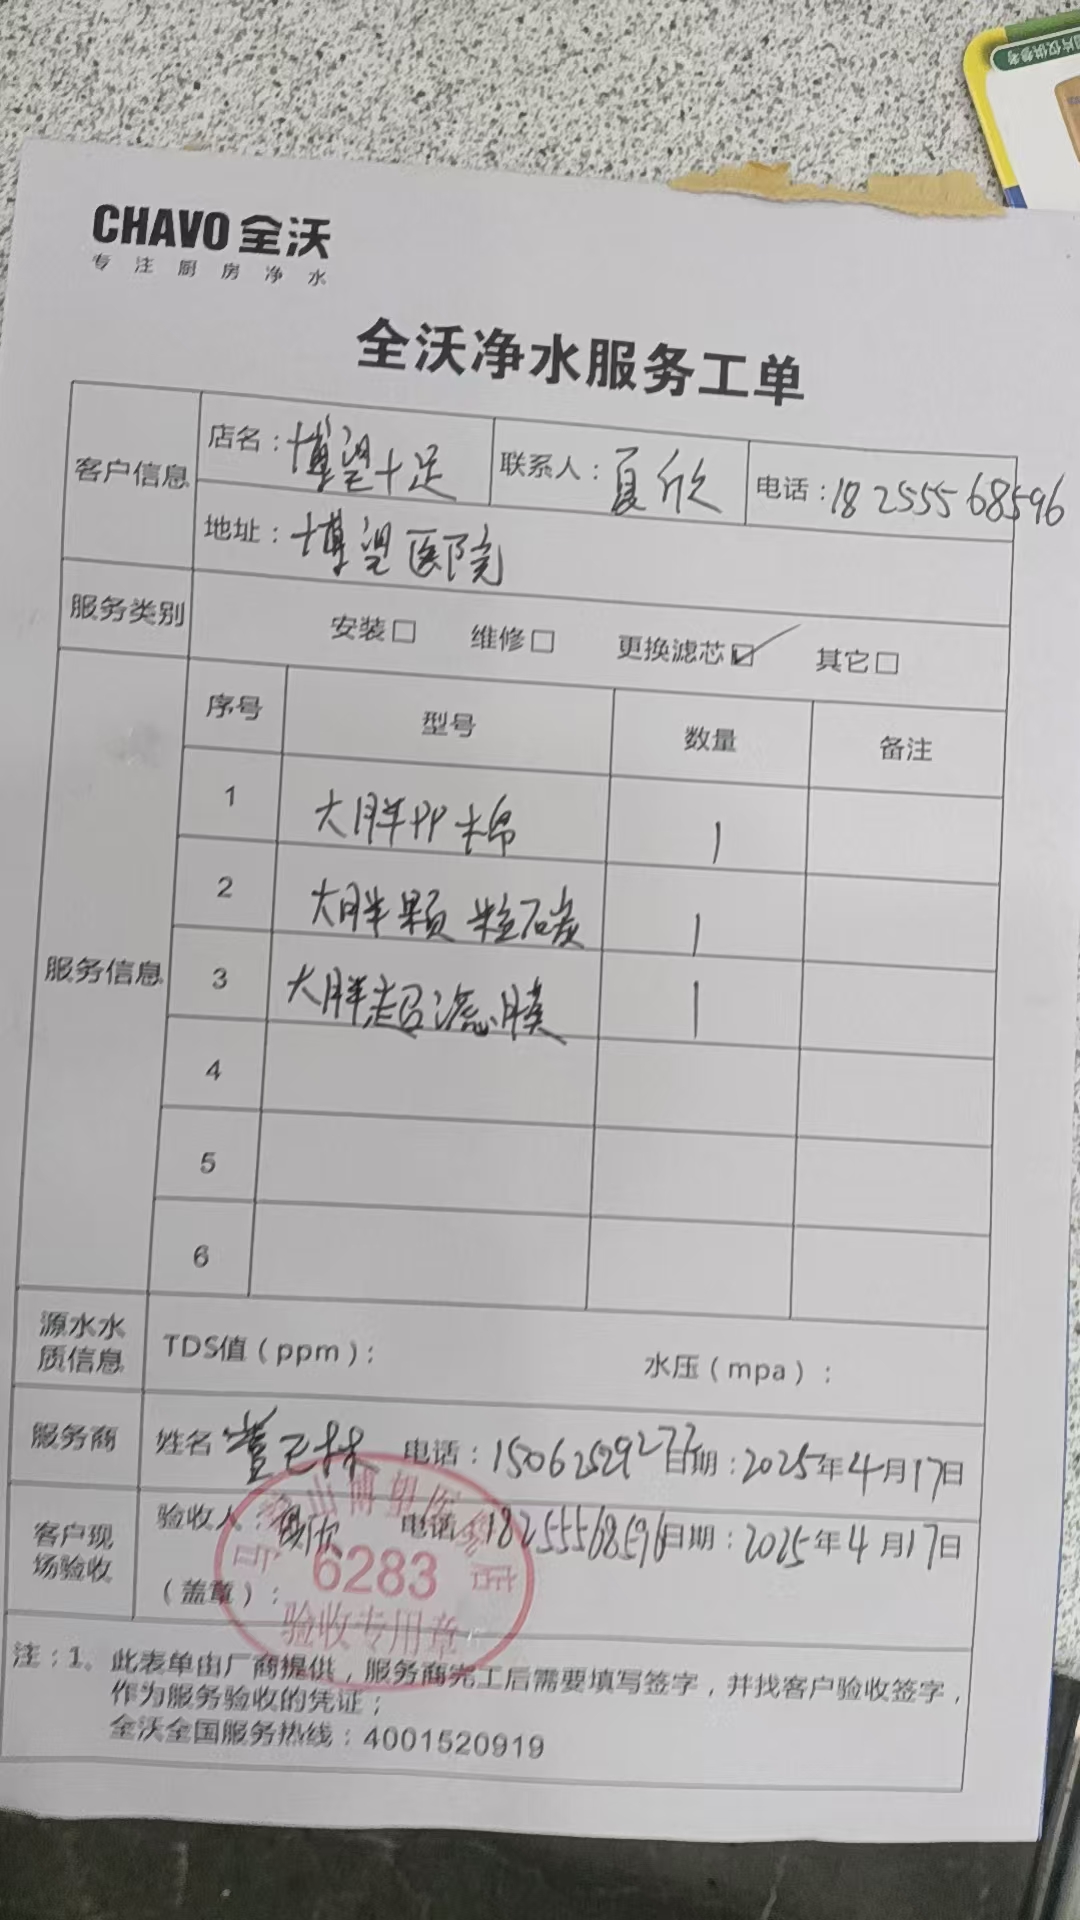 CHAVO 全沃
专注厨房净水
全沃净水服务工单
客户信息 店名：博望十足 联系人：夏欣 电话：18255568596
地址：博望医院
服务类别 安装□ 维修□ 更换滤芯☑ 其它□
服务信息 序号 型号 数量 备注
1 大胖PP棉 1
2 大胖颗粒石炭 1
3 大胖超滤膜 1
4
5
6
源水水质信息 TDS值（ppm）： 水压（mpa）：
服务商 姓名 电话：15062529277 日期：2025年4月17日
客户现场验收 验收人：夏欣 电话：18255568596 日期：2025年4月17日
（盖章）：
山博望医院店
6283
验收专用章
注：1、此表单由厂商提供，服务商完工后需要填写签字，并找客户验收签字，
作为服务验收的凭证；
全沃全国服务热线：4001520919